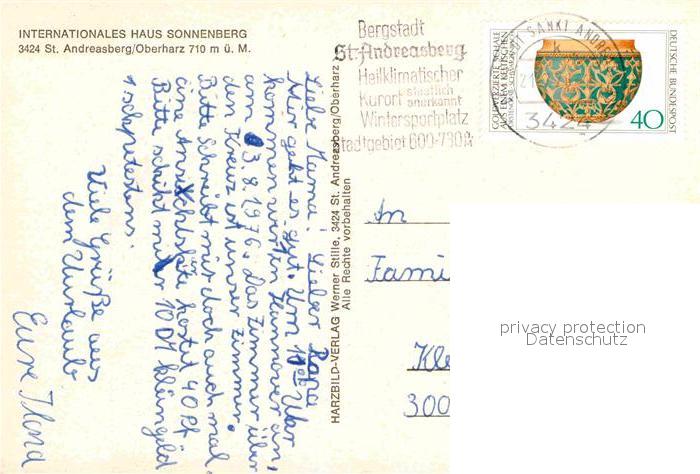 INTERNATIONALES HAUS SONNENBERG
3424 St. Andreasberg/Oberharz 710 m ü. M.
Liebe Mama! Lieber Papa
Mir geht es gut. Um 11⁰⁰ Uhr
kommen wir in Hannover an,
am 3.8.1976. Das Zimmer über
dem Kreuz ist unser Zimmer.
Bitte Schreibt mir doch auch mal
eine Ansichtskarte kostet 40 Pf
Bitte schikt mir 10 DM kleingeld
schpetestens.
Viele Grüße aus
dem Urlaub
Eure Ilona
HARZBILD-VERLAG Werner Stille, 3424 St. Andreasberg/Oberharz
Alle Rechte vorbehalten
Bergstadt
St. Andreasberg
Heilklimatischer
Kurort staatlich
anerkannt
Wintersportplatz
Stadtgebiet 600-730m
SANKT ANDRE
3424
GOLDVERZIERTE SCHALE
AUS DEM KELTISCHEN
DEUTSCHE BUNDESPOST
40
An
Fami
Kle
300
privacy protection
Datenschutz